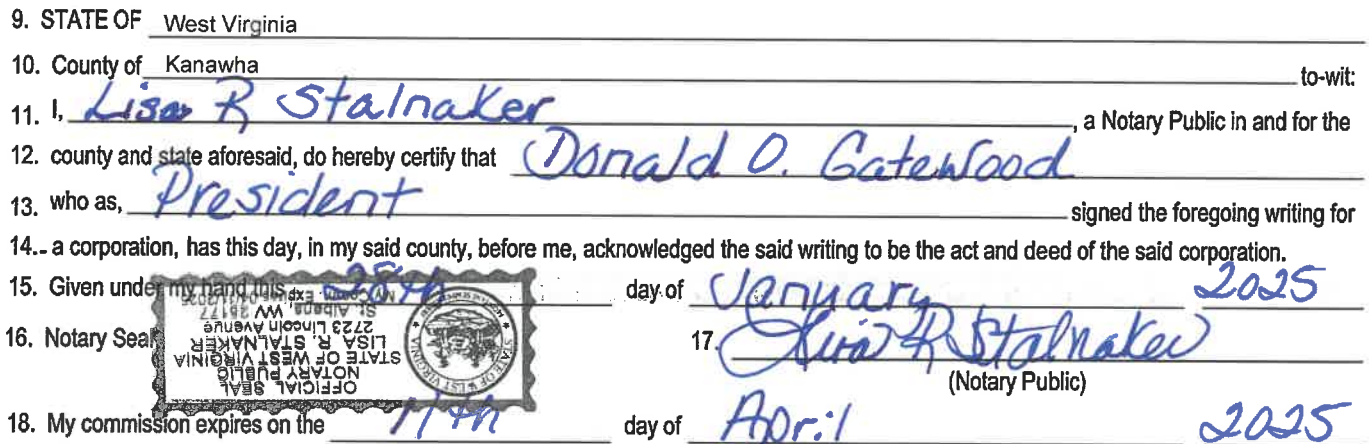 9. STATE OF West Virginia
10. County of Kanawha to-wit:
11. I, Lisa R Stalnaker, a Notary Public in and for the
12. county and state aforesaid, do hereby certify that Donald O. Gatewood
13. who as, President signed the foregoing writing for
14. a corporation, has this day, in my said county, before me, acknowledged the said writing to be the act and deed of the said corporation.
15. Given under my hand this 28th day of January 2025
16. Notary Seal 17. Lisa R Stalnaker
(Notary Public)
OFFICIAL SEAL
NOTARY PUBLIC
STATE OF WEST VIRGINIA
LISA R. STALNAKER
2723 Lincoln Avenue
St. Albans, WV 25177
My Comm. Expires
STATE OF WEST VIRGINIA
18. My commission expires on the 11th day of April 2025